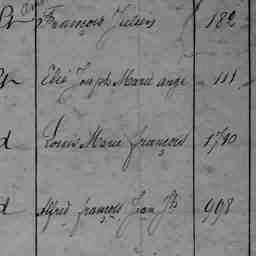 François Julien 182
Elie Joseph Marie ange 111
d Louis Marie françois 1710
d Alfred françois Jean Bte 998